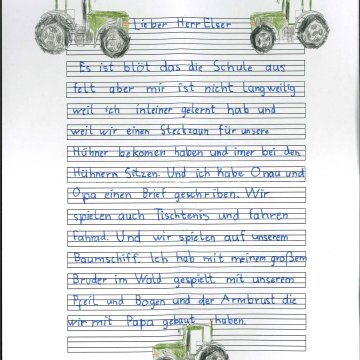 Lieber Herr Elser
Es ist blöt das die Schule aus
felt aber mir ist nicht langweilig
weil ich inleiner gelernt hab und
weil wir einen Steckzaun für unsere
Hühner bekomen haben und imer bei den
Hühnern Sitzen. Und ich habe Oma und
Opa einen Brief geschriben. Wir
spielen auch Tischtenis und fahren
Fahrad. Und wir spielen auf unserem
Baumschiff. Ich hab mit meinem großem
Bruder im Wald gespielt mit unserem
Pfeil und Bogen und der Armbrust die
wir mit Papa gebaut haben.